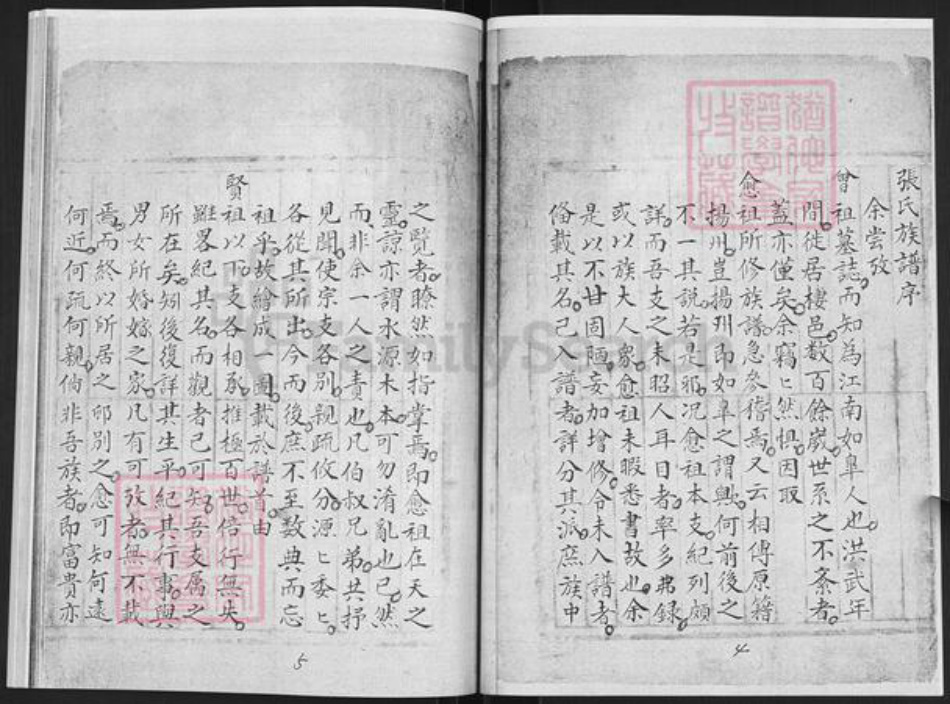 張氏族譜序
余嘗攷
曾祖墓誌而知為江南如臯人也洪武年
間徙居棲邑数百餘嵗世系之不紊者
蓋亦僅矣余竊ヒ然惧因取
愈祖所修族譜急參稽焉又云相傳原籍
揚州豈揚州即如臯之謂與何前後之
不一其説若是耶况愈祖本支紀列頗
詳而吾支之未昭人耳目者率多弗録
或以族大人衆愈祖未暇悉書故也余
是以不甘固陋妄加增修令未入譜者
俻載其名已入譜者詳分其派庶族中
之覽者瞭然如指掌焉即愈祖在天之
靈諒亦謂水源木本可勿淆亂也已然
而非余一人之責也凡伯叔兄弟共抒
見聞使宗支各别親疏攸分源ヒ委ヒ
各從其所出今而後庶不至数典而忘
祖乎故繪成一圖載於譜首由
賢祖以下支各相承推極百世倍行無失
雖畧紀其名而觀者已可知吾支属之
所在矣矧後復詳其生平紀其行事與
男女所婚嫁之家凡有可攷者無不載
焉而終以所居之邨别之愈可知何遠
何近何疏何親倘非吾族者即富貴亦
4
5
FamilySearch